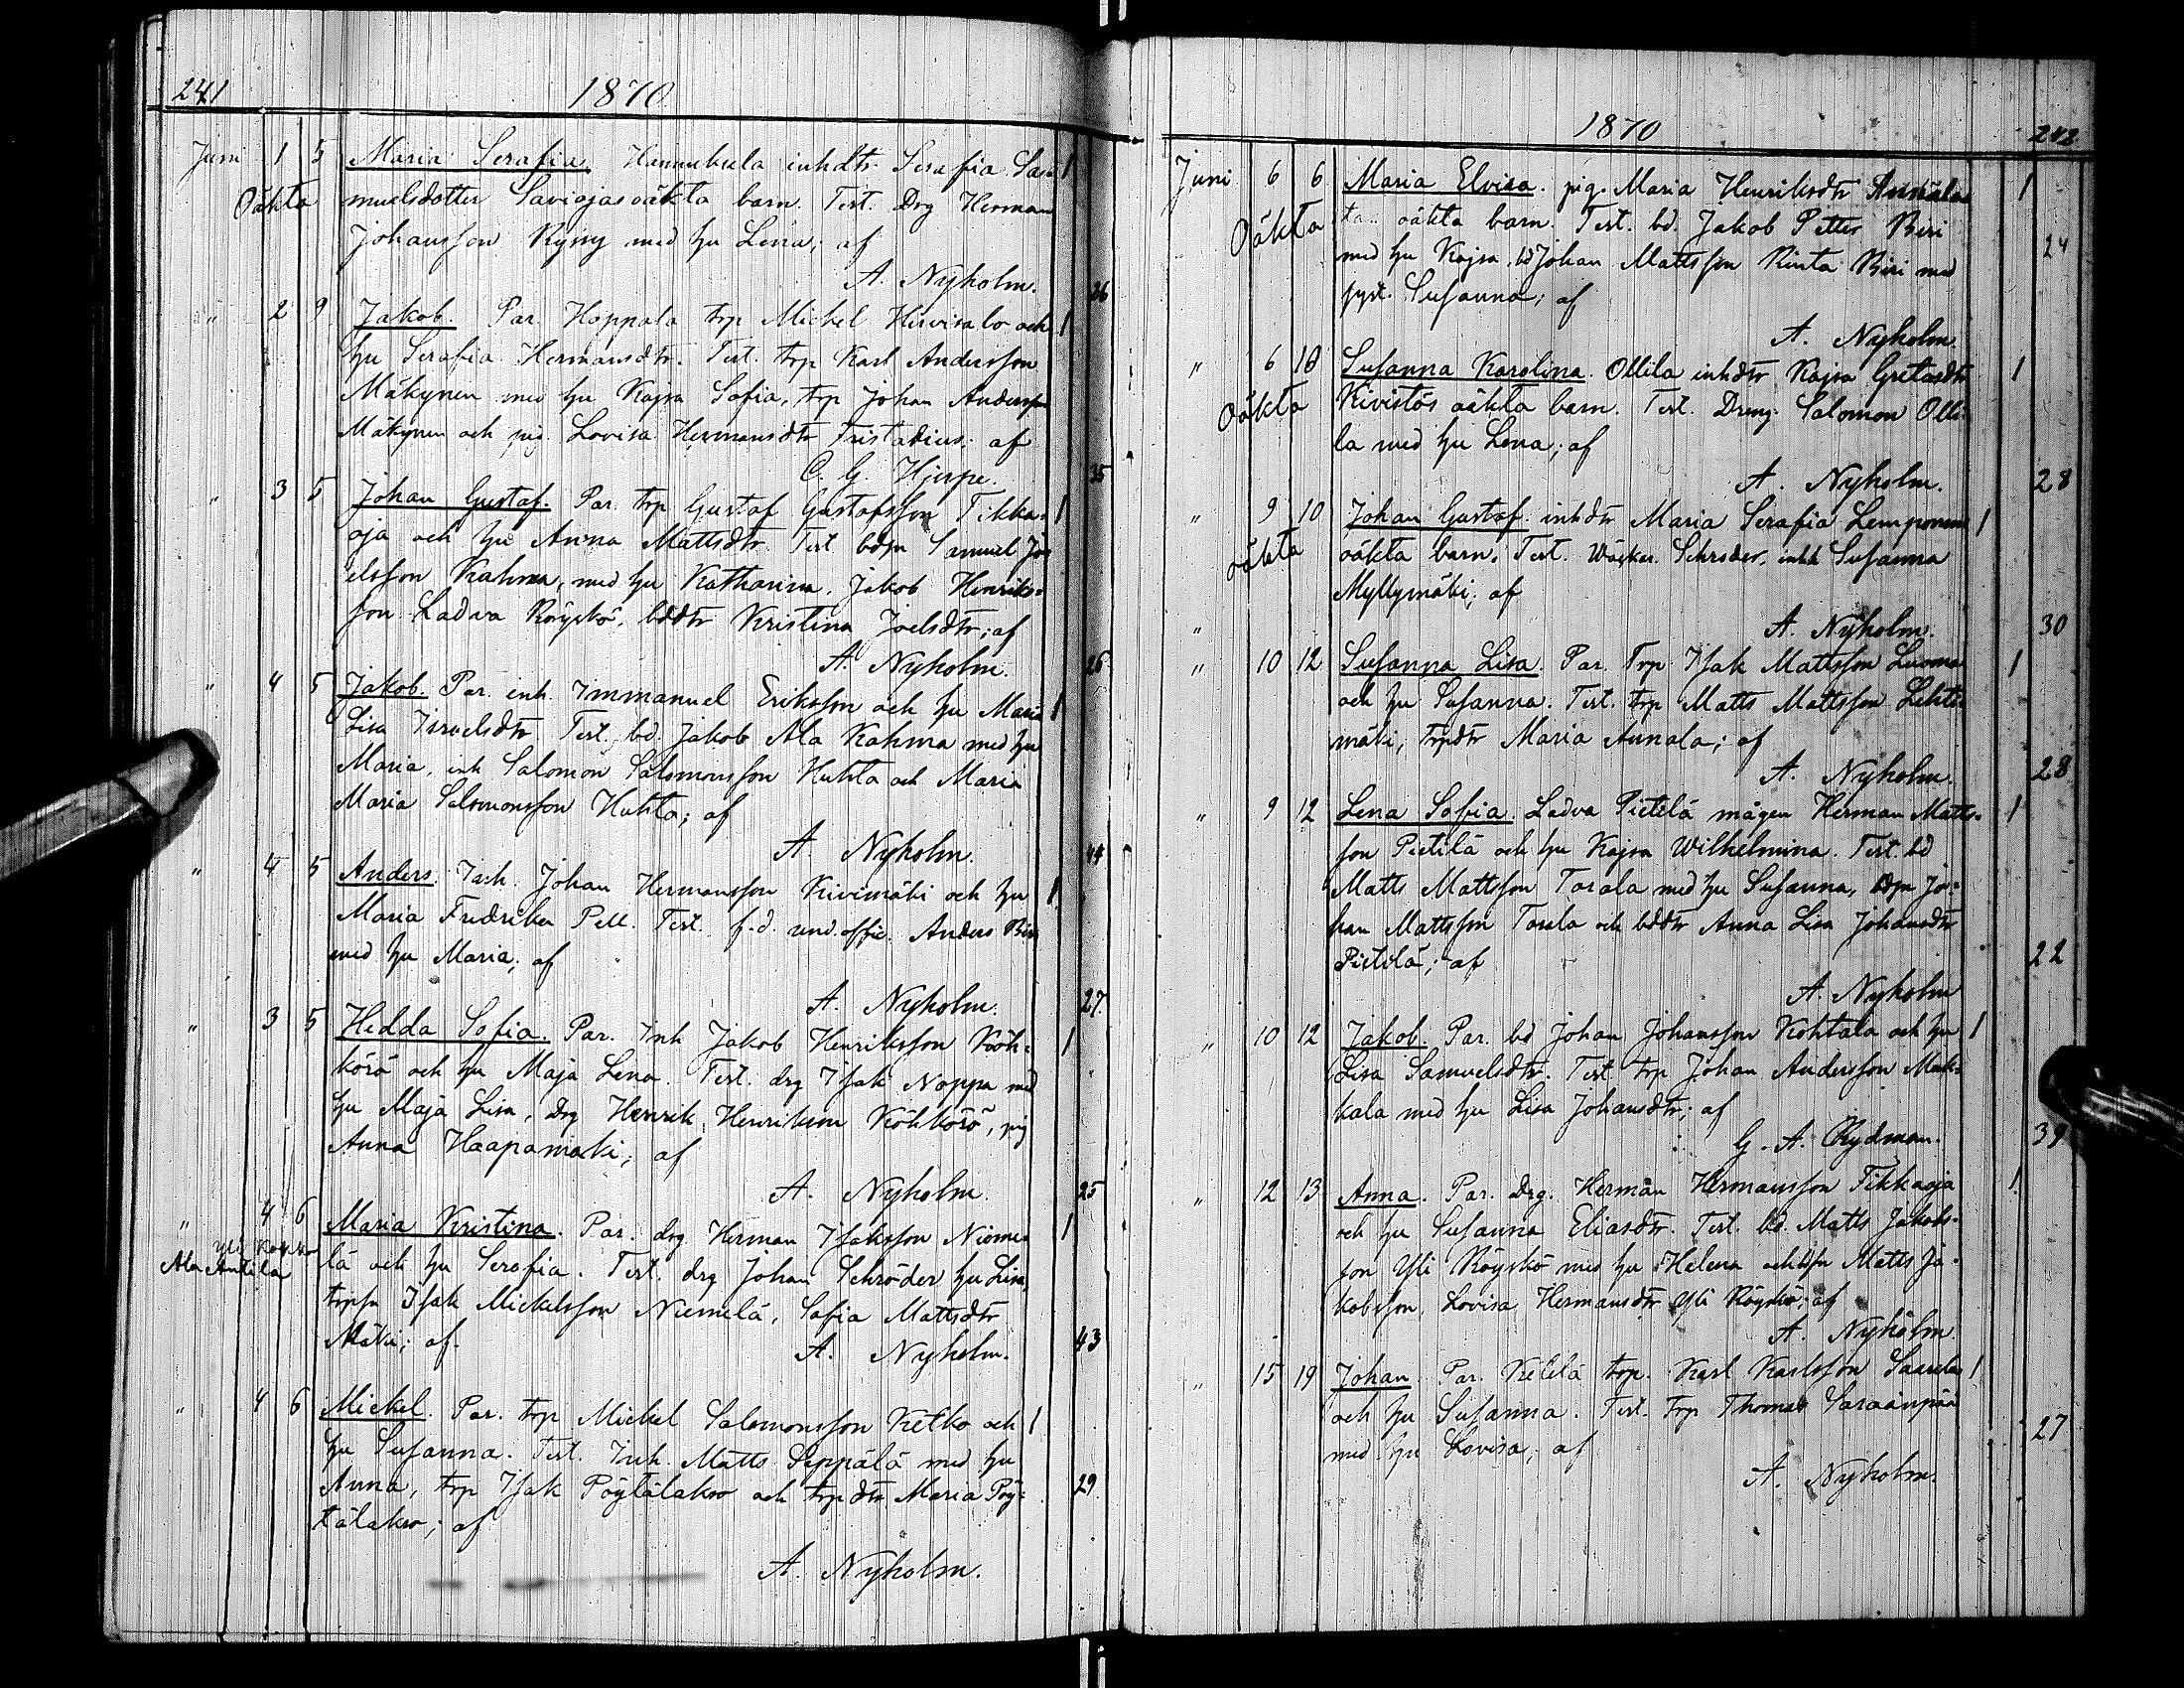 241
1870
Juni 1 5 Maria Serafia. Hannuksela inhdtr Serafia Sa= 1
Oäkta muelsdotter Saviojas oäkta barn. Test. Drg Herman
Johansson Ryssy med hu Lena; af
A. Nyholm. 26
" 2 9 Jakob. Par. Hoppala trp Mickel Hirvisalo och 1
hu Serafia Hermansdtr. Test. trp Karl Andersson
Mäkynen med hu Kajsa Sofia, trp Johan Andersson
Mäkynen och pig. Lovisa Hermansdtr Fristadius; af
C. G. Hjerpe. 35
" 3 5 Johan Gustaf. Par. trp Gustaf Gustafsson Tikka= 1
oja och hu Anna Mattsdtr. Test bdsn Samuel Jo=
elsson Kahma, med hu Katharina, Jakob Henriks=
son Ladva Röyskö, bddtr Kristina Joelsdtr; af
A. Nyholm. 26
" 4 5 Jakob. Par. inh. Immanuel Eriksson och hu Maria 1
Lisa Isroelsdtr. Test. bd. Jakob Ala Kahma med hu
Maria, inh Salomon Salomonsson Huhta och Maria
Maria Salomonsson Huhta; af
A. Nyholm. 44
" 4 5 Anders. Inh. Johan Hermansson Kivimäki och hu 1
Maria Fredrika Pell. Test. f.d. und.offic. Anders
med hu Maria; af
A. Nyholm. 27
" 3 5 Hedda Sofia. Par. Inh Jakob Henriksson Köh= 1
körö och hu Maja Lena. Test. drg Isak Noppa med
hu Maja Lisa, Drg Henrik Henriksson Köhkörö, pig
Anna Haapamäki; af
A. Nyholm. 25
" 4 6 Maria Kristina. Par. drg Herman Isaksson Nieme= 1
Yli
Ala Antila lä och hu Serafia. Test. drg Johan Schröder hu Lisa,
trpsn Isak Mickelsson Niemelä, Sofia Mattsdtr
Mäki; af. A. Nyholm. 43
" 4 6 Mickel. Par. trp Mickel Salomonsson Ketko och 1
hu Susanna. Test. Inh. Matts Seppälä med hu
Anna, trp Isak Pöytälakso och trpdtr Maria Pöy= 29
tälakso; af
A. Nyholm.
1870 242
Juni 6 6 Maria Elvira. pig. Maria Henriksdtr Annala 1
Oäkta oäkta barn. Test. bd. Jakob Petter Biri 24
med hu Kajsa, bd Johan Mattsson Rinta Biri med
syst. Susanna; af
A. Nyholm
" 6 10 Susanna Karolina. Ollila inhdtr Kajsa Gretasdtr 1
Oäkta Kivistös oäkta barn. Test. Dreng. Salomon Olli=
la med hu Lena; af
A. Nyholm. 28
" 9 10 Johan Gustaf. inhdtr Maria Serafia Lemponens 1
oäkta oäkta barn. Test. Schröder, inhh Susanna
Myllymäki; af
" A. Nyholm. 30
" 10 12 Susanna Lisa. Par. Trp Isak Mattsson Luoma 1
och hu Susanna. Test. trp Matts Mattsson Lehti=
mäki, trpdtr Maria Annala; af
A. Nyholm. 28
" 9 12 Lena Sofia. Ladva Pietilä mågen Herman Matts= 1
son Pietilä och hu Kajsa Wilhelmina. Test. bd
Matts Mattsson Torala med hu Susanna, bdsn Jo=
han Mattsson Torala och bddtr Anna Lisa Johansdtr
Pietilä; af 22
A. Nyholm
" 10 12 Jakob. Par. bd Johan Johansson Kohtala och hu 1
Lisa Samuelsdtr. Test. trp Johan Andersson Mak=
kala med hu Lisa Johansdtr; af
G. A. Rydman. 39
" 12 13 Anna. Par. Drg. Herman Hermansson Tikkaoja 1
och hu Susanna Eliasdtr. Test. bd. Matts Jakobs=
son Yli Röyskö med hu Helena och bdsn Matts Ja=
kobsson, Lovisa Hermansdtr Yli Röyskö; af
A. Nyholm
" 15 19 Johan. Par. Ketelä trp. Karl Karlsson Saarela 1
och hu Susanna. Test. trp Thomas Saraänpää
med hu Lovisa; af 27
A. Nyholm.